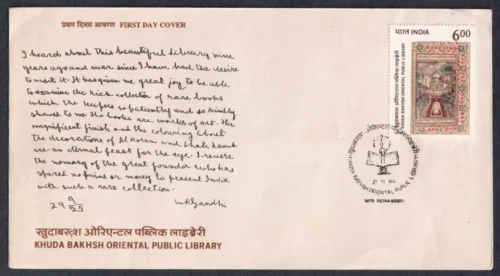 प्रथम दिवस आवरण FIRST DAY COVER
I heard about this beautiful library nine
years ago and ever since I have had the desire
to visit it. It has given me great joy to be able
to examine the rich collection of rare books
which the keepers so patiently and so kindly
showed to me. The books are works of art. The
magnificent finish and the colouring about
the decorations of Al Koran and Shah Nama
are an eternal feast for the eye. I revere
the memory of the great founder who has
spared no pains or money to present India
with such a rare collection.
29 9/25 MKGandhi
खुदाबख्श ओरिएन्टल पब्लिक लाइब्रेरी
KHUDA BAKHSH ORIENTAL PUBLIC LIBRARY
भारत INDIA 6.00
खुदाबख्श ओरिएन्टल पब्लिक लाइब्रेरी
KHUDA BAKHSH ORIENTAL PUBLIC LIBRARY
KHUDA BAKHSH ORIENTAL PUBLIC LIBRARY
पटना PATNA 800001